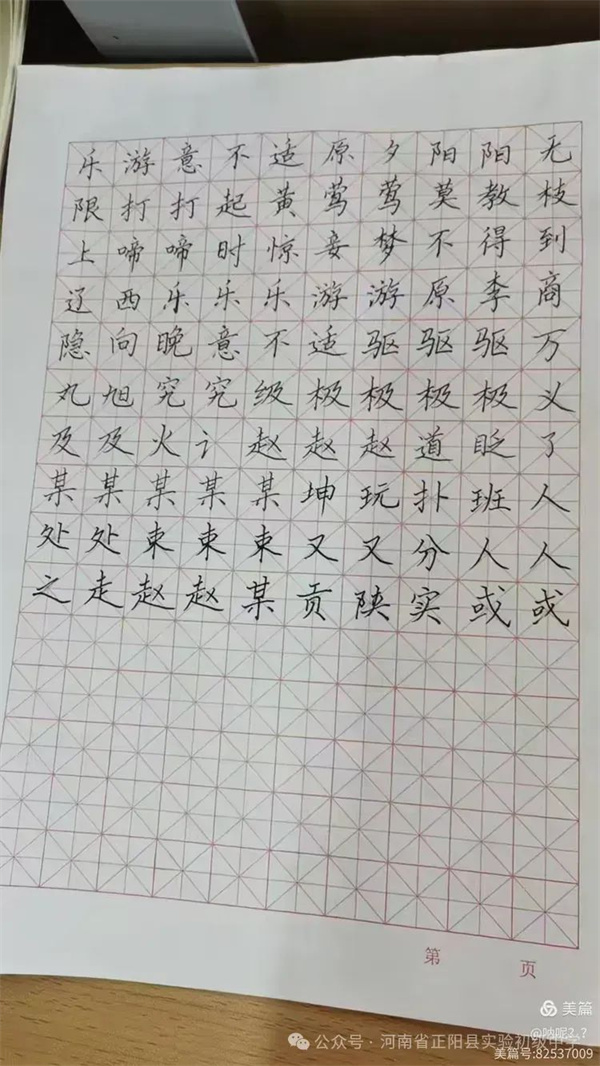 乐游意不适原夕阳阳无
限打打起黄莺莺莫教枝
上啼啼时惊妾梦不得到
辽西乐乐乐游游原李商
隐向晚意不适驱驱驱万
丸旭究究级极极极极义
及及火讠赵赵赵道眨了
某某某某某坤玩扑班人
处处束束束又又分人人
之走赵赵某贡陕实或或
第 页
美篇
@呐呢?.?
公众号·河南省正阳县实验初级中学
美篇号:82537009